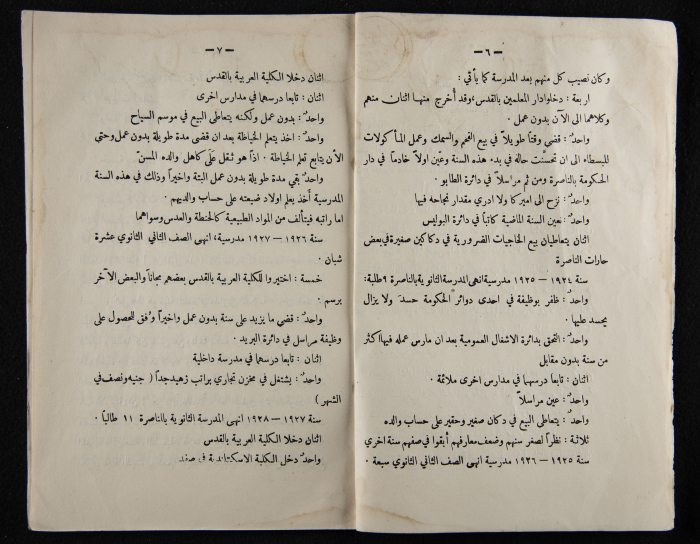 — ٦ —
وكان نصيب كل منهم بعد المدرسة كما يأتي :
اربعة : دخلوا دار المعلمين بالقدس، وقد أُخرج منها اثنان منهم
وكلاهما الى الان بدون عمل .
واحدٌ : قضى وقتاً طويلاً في بيع الفحم والسمك وعمل المأكولات
للبسطاء الى الان تحسنت حاله في بدء هذه السنة وعين اولاً خادماً في دار
الحكومة بالناصرة ومن ثم مراسلاً في دائرة الطابو .
واحدٌ : نزح الى اميركا ولا ادري مقدار نجاحه فيها
واحدٌ : عين السنة الماضية كاتباً في دائرة البوليس
اثنان يتعاطيان بيع الحاجيات الضرورية في دكاكين صغيرة في بعض
حارات الناصرة
سنة ١٩٢٤ — ١٩٢٥ مدرسية انهى المدرسة الثانوية بالناصرة ٩ طلبة :
واحدٌ : ظفر بوظيفة في احدى دوائر الحكومة حسد ولا يزال
يحسد عليها .
واحدٌ : التحق بدائرة الاشغال العمومية بعد ان مارس عمله فيها اكثر
من سنة بدون مقابل
اثنان : تابعا درسهما في مدارس اخرى ملائمة .
واحدٌ : عين مراسلاً
واحدٌ : يتعاطى البيع في دكان صغير وحقير على حساب والده
ثلاثة : نظراً لصغر سنهم وضعف معارفهم أبقوا في صفهم سنة اخرى
سنة ١٩٢٥ — ١٩٢٦ مدرسية انهى الصف الثاني الثانوي سبعة .
— ٧ —
اثنان دخلا الكلية العربية بالقدس
اثنان : تابعا درسهما في مدارس اخرى
واحدٌ : بدون عمل ولكنه يتعاطى البيع في موسم السياح
واحدٌ : اخذ يتعلم الخياطة بعد ان قضى مدة طويلة بدون عمل وحتى
الآن يتابع تعلم الخياطة . اذاً هو ثقل عَلَى كاهل والده المسنّ
واحدٌ بقي مدة طويلة بدون عمل البتة واخيراً وذلك في هذه السنة
المدرسية أخذ يعلم اولاد ضيعته على حساب والديهم .
اما راتبه فيتألف من المواد الطبيعية كالحنطة والعدس وسواهما
سنة ١٩٢٦ — ١٩٢٧ مدرسية، انهى الصف الثاني الثانوي عشرة
شبان .
خمسة : اختيروا للكلية العربية بالقدس بعضهم مجاناً والبعض الآخر
برسم .
واحدٌ : قضى ما يزيد على سنة بدون عمل واخيراً وُفق للحصول على
وظيفة مراسل في دائرة البريد .
اثنان : تابعا درسهما في مدرسة داخلية
واحدٌ : يشتغل في مخزن تجاري براتب زهيد جداً ( جنيه ونصف في
الشهر )
سنة ١٩٢٧ — ١٩٢٨ انهى المدرسة الثانوية بالناصرة ١١ طالباً .
اثنان دخلا الكلية العربية بالقدس
واحدٌ دخل الكلية الاسكتلندية في صفد